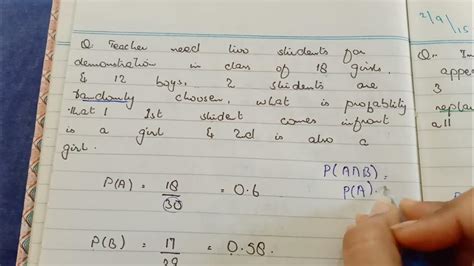 2/9/15
Q. Teacher need two students for
demonstration in class of 18 girls
& 12 boys, 2 students are
randomly choosen, what is probability
that 1 1st student comes infront
is a girl & 2d is also a
girl.
P(A) = 18/30 = 0.6
P(A∩B) =
P(A) .
P(B) = 17/29 = 0.58.
Q..
appe
3
replac
all